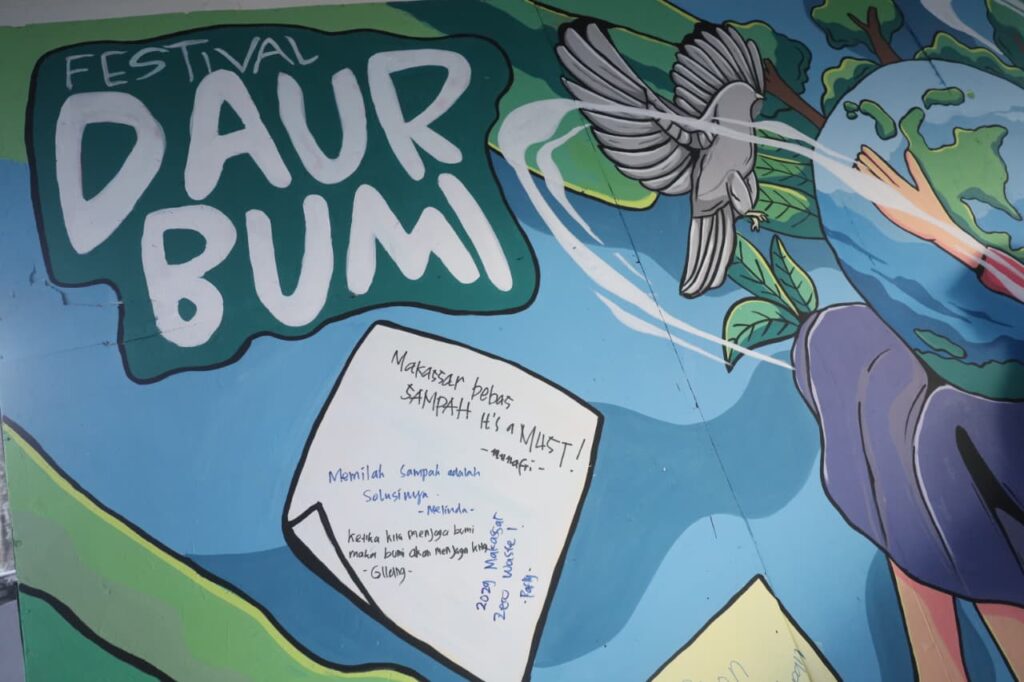 FESTIVAL
DAUR
BUMI
Makassar bebas
SAMPAH It's a MUST!
- Munafri -
Memilah sampah adalah
solusinya.
- Melinda -
ketika kita menjaga bumi
maka bumi akan menjaga kita
- Gilang -
2029 Makassar
Zero Waste!